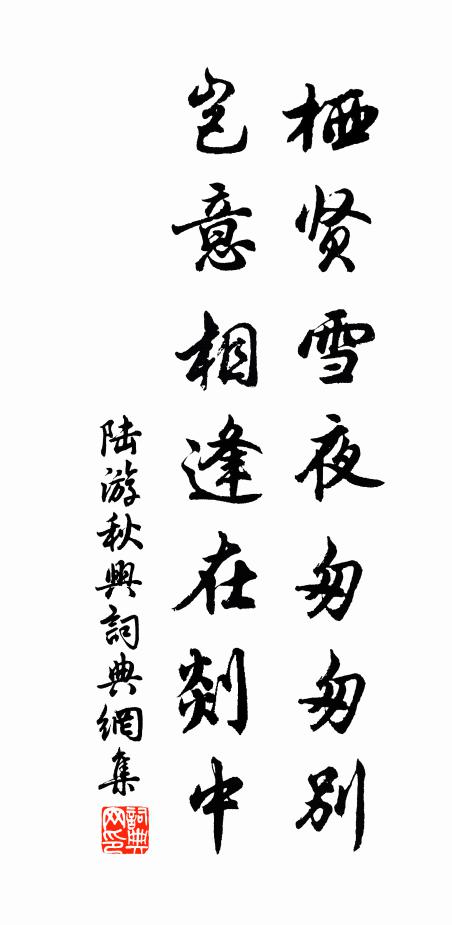 栖贤雪夜匆匆别
岂意相逢在剡中
陆游秋興詞典網集
詞典网印